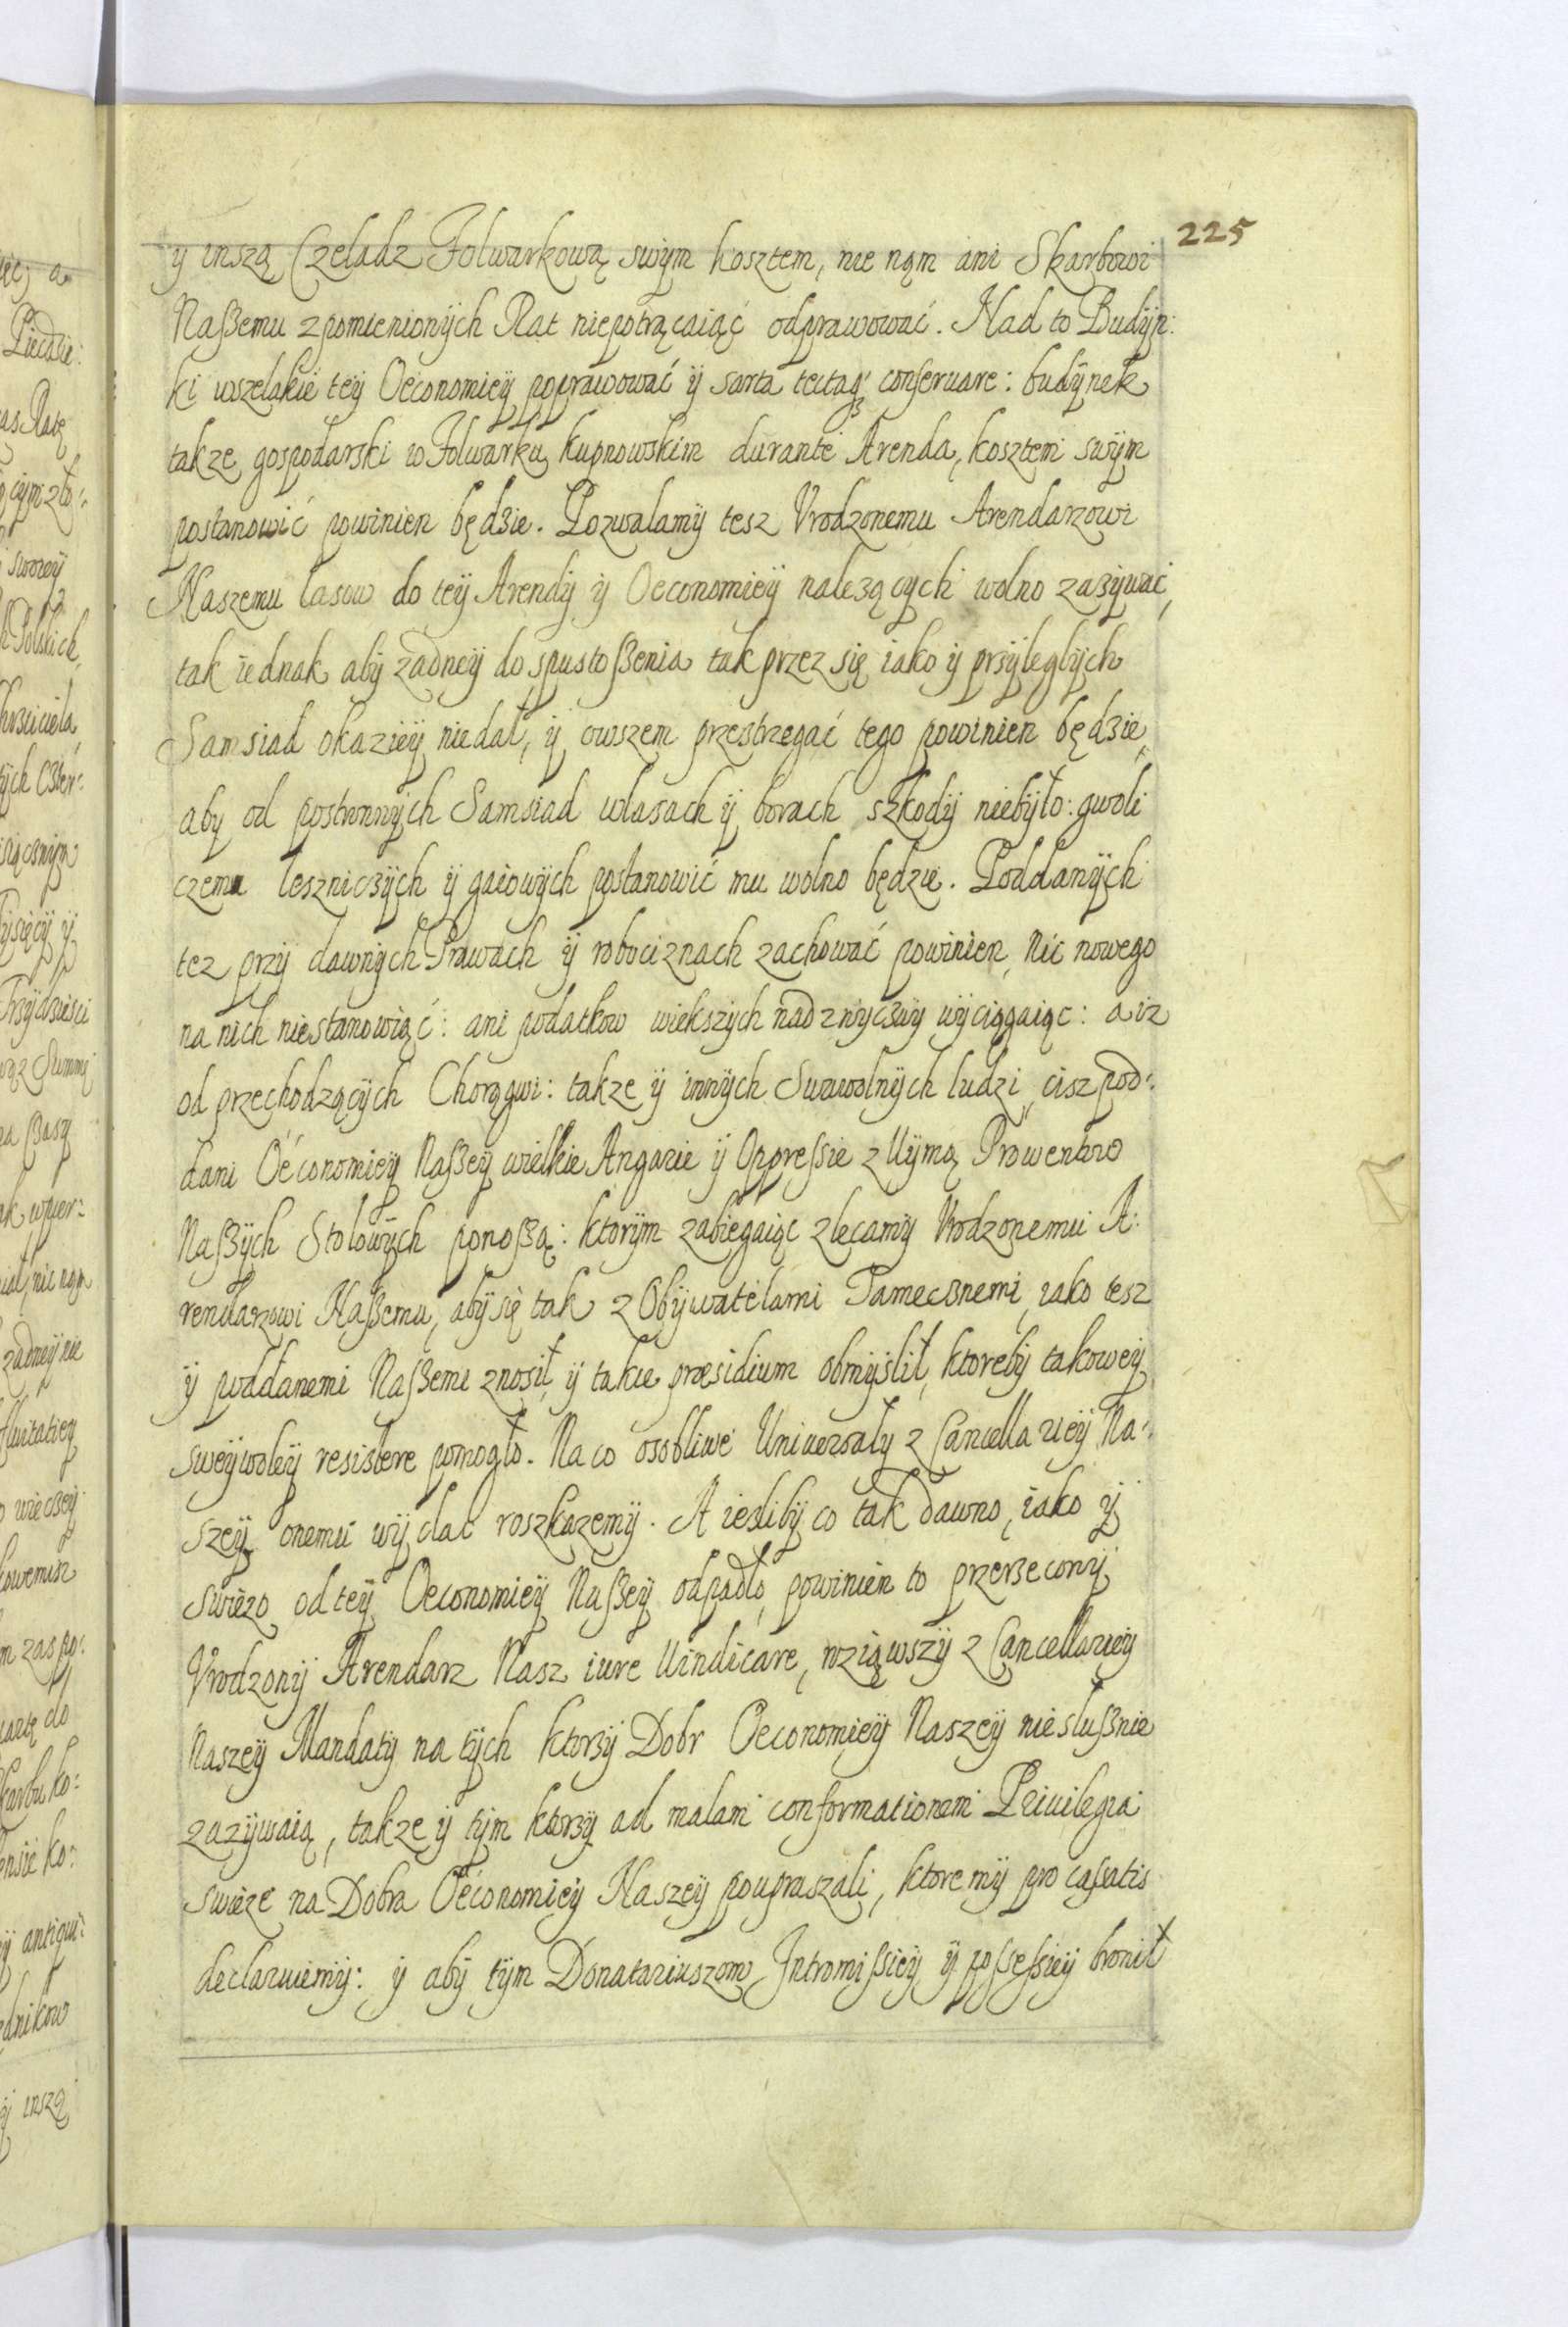 225
ÿ inszą Czeladz Folwarkową swÿm kosztem, nie nąm ani Skarbowi
Naßemu zpomienionÿch Rat niepotrącaiąć odprawować. Nad to Budÿn:
ki wszelakie teÿ Oeconomieÿ poprawować ÿ sarta tectaq3 conseruare: budÿnek
takze gospodarski w Folwarku kupnowskim durante Arenda, kosztem swÿm
postanowić powinien będzie. Pozwalamÿ tesz Vrodzonemu Arendarzowi
Naszemu lasow do teÿ Arendÿ ÿ Oeconomieÿ nalezącÿch wolno zazÿwać,
tak iednak abÿ zadneÿ do spustoßenia tak przez się iako ÿ przÿleglÿch
Samsiad okazieÿ niedał, ÿ owszem przestrzegać tego powinien będzie,
aby od postronnÿch Samsiad wlasach ÿ borach szkodÿ niebÿło: gwoli
czemu leszniczÿch ÿ gaiowÿch postanowić mu wolno będzie. Poddanÿch
tez przÿ dawnÿch Prawach ÿ robociznach zachować powinien, Nic nowego
na nich niestanowiąć: ani podatkow wiekszÿch nad zwÿczaÿ wÿciągaiąc: a iz
od przechodzącÿch Chorągwi: takze ÿ innÿch Swawolnÿch ludzi, cisz pod:
dani Oeconomieÿ Naßeÿ wielkie Angarie ÿ Oppressie z Uÿmą Prowentow
Naßÿch Stolowÿch ponoßą: ktorÿm zabiegaiąc zlecamÿ Vrodzonemu A:
rendarzowi Naßemu, abÿ się tak z Obÿwatelami Tamecznemi, iako tesz
ÿ poddanemi Naßemi znosił, ÿ takie præsidium obmÿslił, ktorebÿ takoweÿ
sweÿwoleÿ resistere pomogło. Na co osobliwe Uniuersały z Cancellarieÿ Na:
szeÿ onemu wÿdać roszkazemÿ. A ieslibÿ co tak dawno, iako ÿ
swiezo od teÿ Oeconomieÿ Naßeÿ odpadło, powinien to przerzeconÿ
Vrodzonÿ Arendarz Nasz iure Uindicare, wziąwszÿ z Cancellarieÿ
Naszeÿ Mandatÿ na tÿch ktorzÿ Dobr Oeconomieÿ Naszeÿ niesłußnie
zazÿwaią, takze ÿ tÿm ktorzÿ ad malam conformationem Priuilegia
swieze na Dobra Oeconomieÿ Naszeÿ poupraszali, ktore mÿ pro cassatis
declaruiemÿ: ÿ abÿ tÿm Donatariuszom Intromissieÿ ÿ possessieÿ bronił